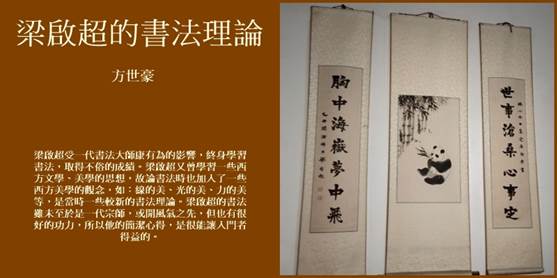 梁啟超的書法理論
方世豪
梁啟超受一代書法大師康有為的影響，終身學習
書法，取得不俗的成績。梁啟超又曾學習一些西
方文學、美學的思想，故論書法時也加入了一些
西方美學的觀念，如：線的美、光的美、力的美
等，是當時一些較新的書法理論。梁啟超的書法
雖未至於是一代宗師，或開風氣之先，但也有很
好的功力，所以他的簡潔心得，是很能讓入門者
得益的。
世事滄桑心事定
胸中海嶽夢中飛